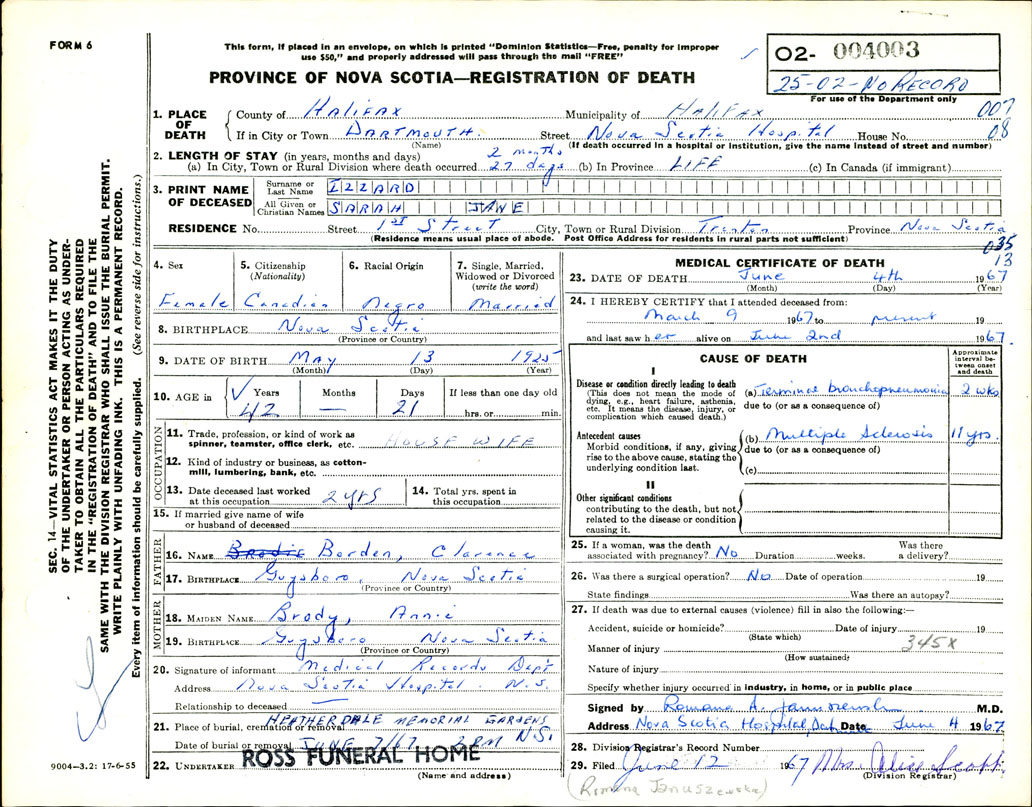 FORM 6
This form, if placed in an envelope, on which is printed "Dominion Statistics—Free, penalty for improper
use $50," and properly addressed will pass through the mail "FREE"
PROVINCE OF NOVA SCOTIA—REGISTRATION OF DEATH
O2- 004003
25-02-No RECORD
For use of the Department only
007
08
1. PLACE OF DEATH
County of HALIFAX Municipality of HALIFAX
If in City or Town DARTMOUTH. Street Nova Scotia Hospital House No.
(Name) (If death occurred in a hospital or institution, give the name instead of street and number)
2. LENGTH OF STAY (in years, months and days) 2 months
(a) In City, Town or Rural Division where death occurred 27 days (b) In Province LIFE (c) In Canada (if immigrant)
3. PRINT NAME OF DECEASED
Surname or Last Name IZZARD
All Given or Christian Names SARAH JANE
RESIDENCE No. Street 1st Street City, Town or Rural Division Trenton Province Nova Scotia
(Residence means usual place of abode. Post Office Address for residents in rural parts not sufficient)
035
13
4. Sex Female
5. Citizenship (Nationality) Canadian
6. Racial Origin Negro
7. Single, Married, Widowed or Divorced (write the word) Married
8. BIRTHPLACE Nova Scotia
(Province or Country)
9. DATE OF BIRTH May 13 1925
(Month) (Day) (Year)
10. AGE in Years Months Days If less than one day old
42 — 21 hrs. or min.
OCCUPATION
11. Trade, profession, or kind of work as
spinner, teamster, office clerk, etc. HOUSE WIFE
12. Kind of industry or business, as cotton-
mill, lumbering, bank, etc.
13. Date deceased last worked
at this occupation 2 yrs
14. Total yrs. spent in
this occupation
15. If married give name of wife
or husband of deceased
FATHER
16. NAME Brodie Borden, Clarence
17. BIRTHPLACE Guysboro, Nova Scotia
(Province or Country)
MOTHER
18. MAIDEN NAME Brody, Annie
19. BIRTHPLACE Guysboro Nova Scotia
(Province or Country)
20. Signature of informant Medical Records Dep't
Address Nova Scotia Hospital. N.S.
Relationship to deceased —
21. Place of burial, cremation or removal HEATHERDALE MEMORIAL GARDENS
Date of burial or removal JUNE 7/67 2 PM N.S.
22. UNDERTAKER ROSS FUNERAL HOME
(Name and address)
MEDICAL CERTIFICATE OF DEATH
23. DATE OF DEATH June 4th 1967
(Month) (Day) (Year)
24. I HEREBY CERTIFY that I attended deceased from:
March 9 1967 to present 19
and last saw her alive on June 2nd 1967.
CAUSE OF DEATH
Approximate interval between onset and death
I
Disease or condition directly leading to death
(This does not mean the mode of
dying, e.g., heart failure, asthenia,
etc. It means the disease, injury, or
complication which caused death.)
(a) Terminal bronchopneumonia 2 wks
due to (or as a consequence of)
Antecedent causes
Morbid conditions, if any, giving
rise to the above cause, stating the
underlying condition last.
(b) Multiple Sclerosis 11 yrs.
due to (or as a consequence of)
(c)
II
Other significant conditions
contributing to the death, but not
related to the disease or condition
causing it.
25. If a woman, was the death
associated with pregnancy? No Duration weeks. Was there a delivery?
26. Was there a surgical operation? No Date of operation 19
State findings Was there an autopsy?
27. If death was due to external causes (violence) fill in also the following:—
Accident, suicide or homicide? Date of injury 19
(State which)
345X
Manner of injury
(How sustained)
Nature of injury
Specify whether injury occurred in industry, in home, or in public place
Signed by Romana A. M.D.
Address Nova Scotia Hospital, Date June 4 1967
28. Division Registrar's Record Number
29. Filed June 12 1967 Mrs. Alice Scott
(Division Registrar)
(Romana Januszewska)
9004-3.2: 17-6-55
SEC. 14—VITAL STATISTICS ACT MAKES IT THE DUTY
OF THE UNDERTAKER OR PERSON ACTING AS UNDER-
TAKER TO OBTAIN ALL THE PARTICULARS REQUIRED
IN THE "REGISTRATION OF DEATH" AND TO FILE THE
SAME WITH THE DIVISION REGISTRAR WHO SHALL ISSUE THE BURIAL PERMIT.
WRITE PLAINLY WITH UNFADING INK. THIS IS A PERMANENT RECORD.
Every item of information should be carefully supplied. (See reverse side for instructions.)